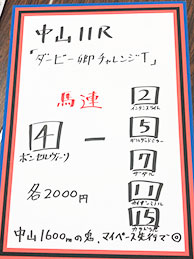 中山11R
「ダービー卿チャレンジT」
馬連
4 ー 2
インテンスライト
5
7
11
15
ボンセルヴィーソ
各2000円
中山1600mの鬼、マイペース先行で◎